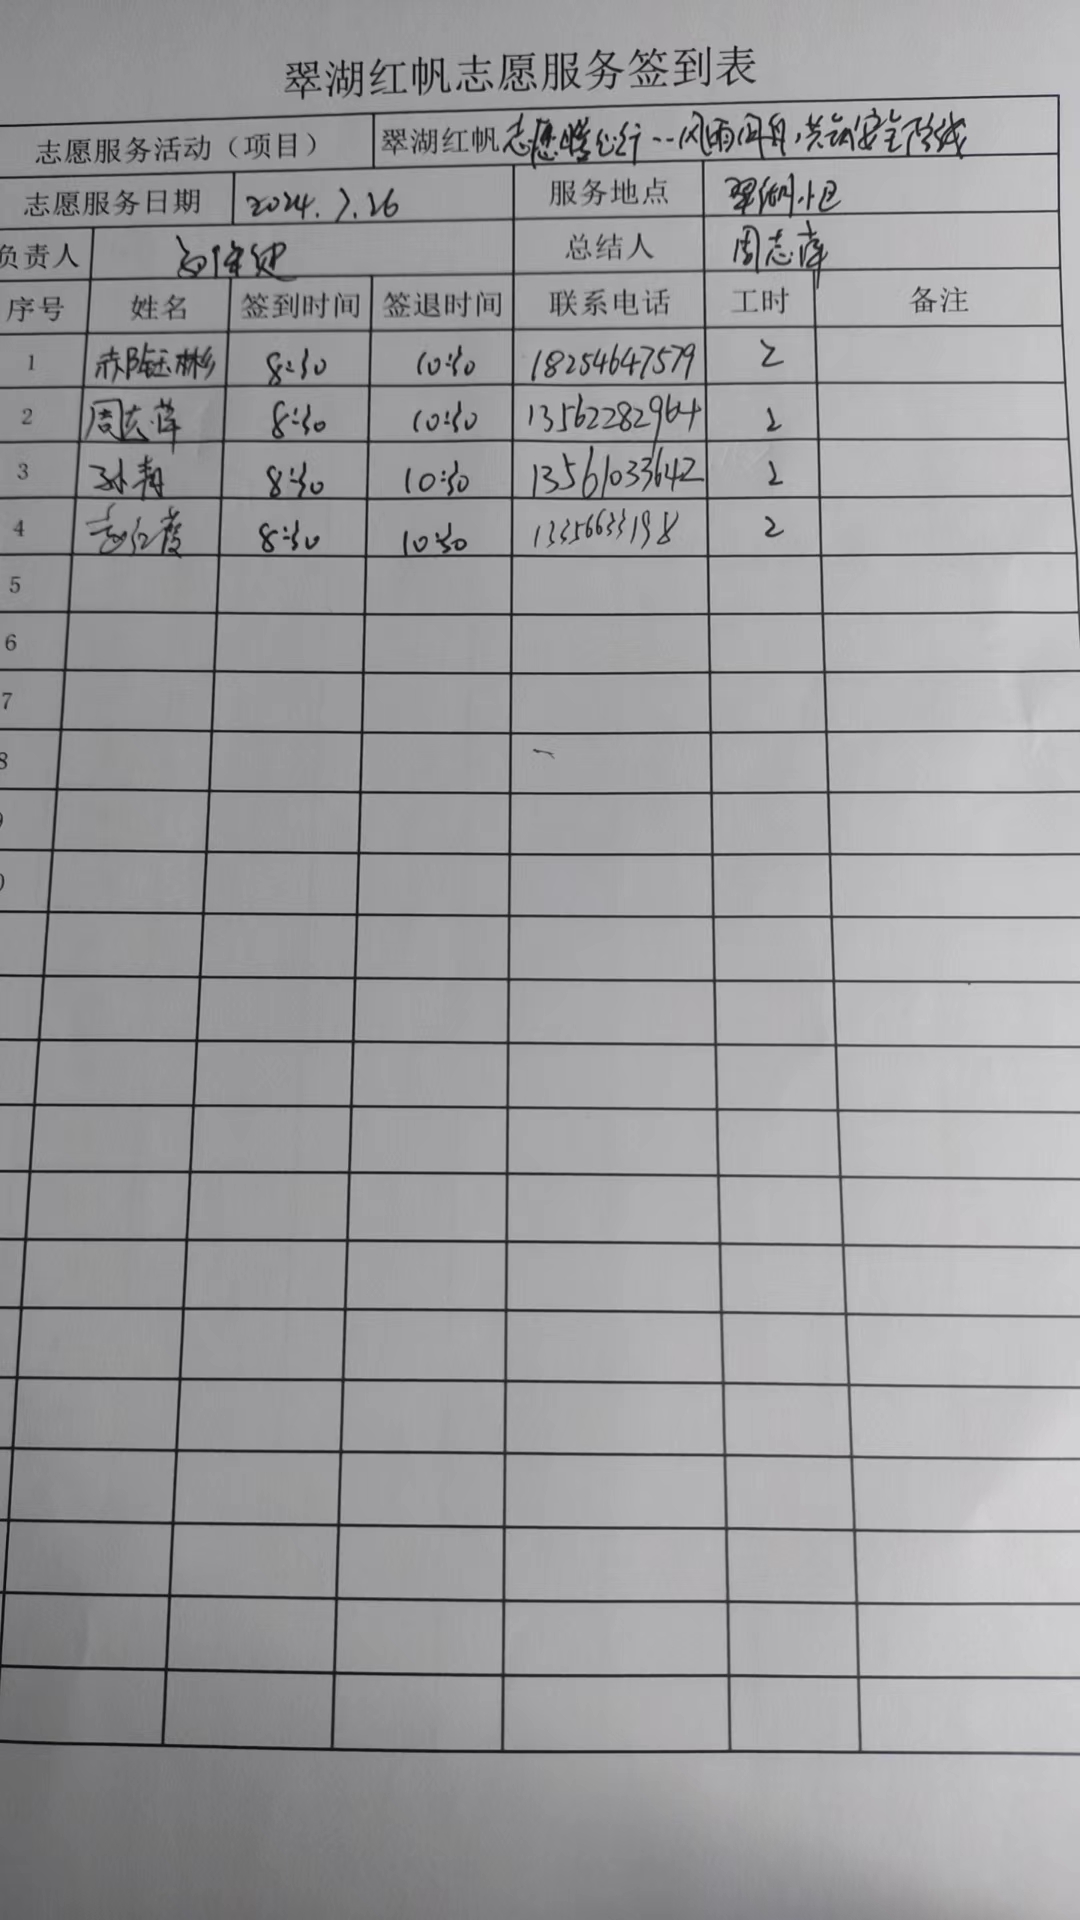 翠湖红帆志愿服务签到表
志愿服务活动（项目） 翠湖红帆志愿 心行--风雨同舟，共筑安全防线
志愿服务日期 2024.7.26 服务地点 翠湖小区
负责人 总结人 周志萍
序号 姓名 签到时间 签退时间 联系电话 工时 备注
1 8:30 10:30 18254647579 2
2 周志萍 8:30 10:30 13562282964 2
3 孙青 8:30 10:30 13561033642 2
4 赵红霞 8:30 10:30 1335663398 2
5
6
7
8